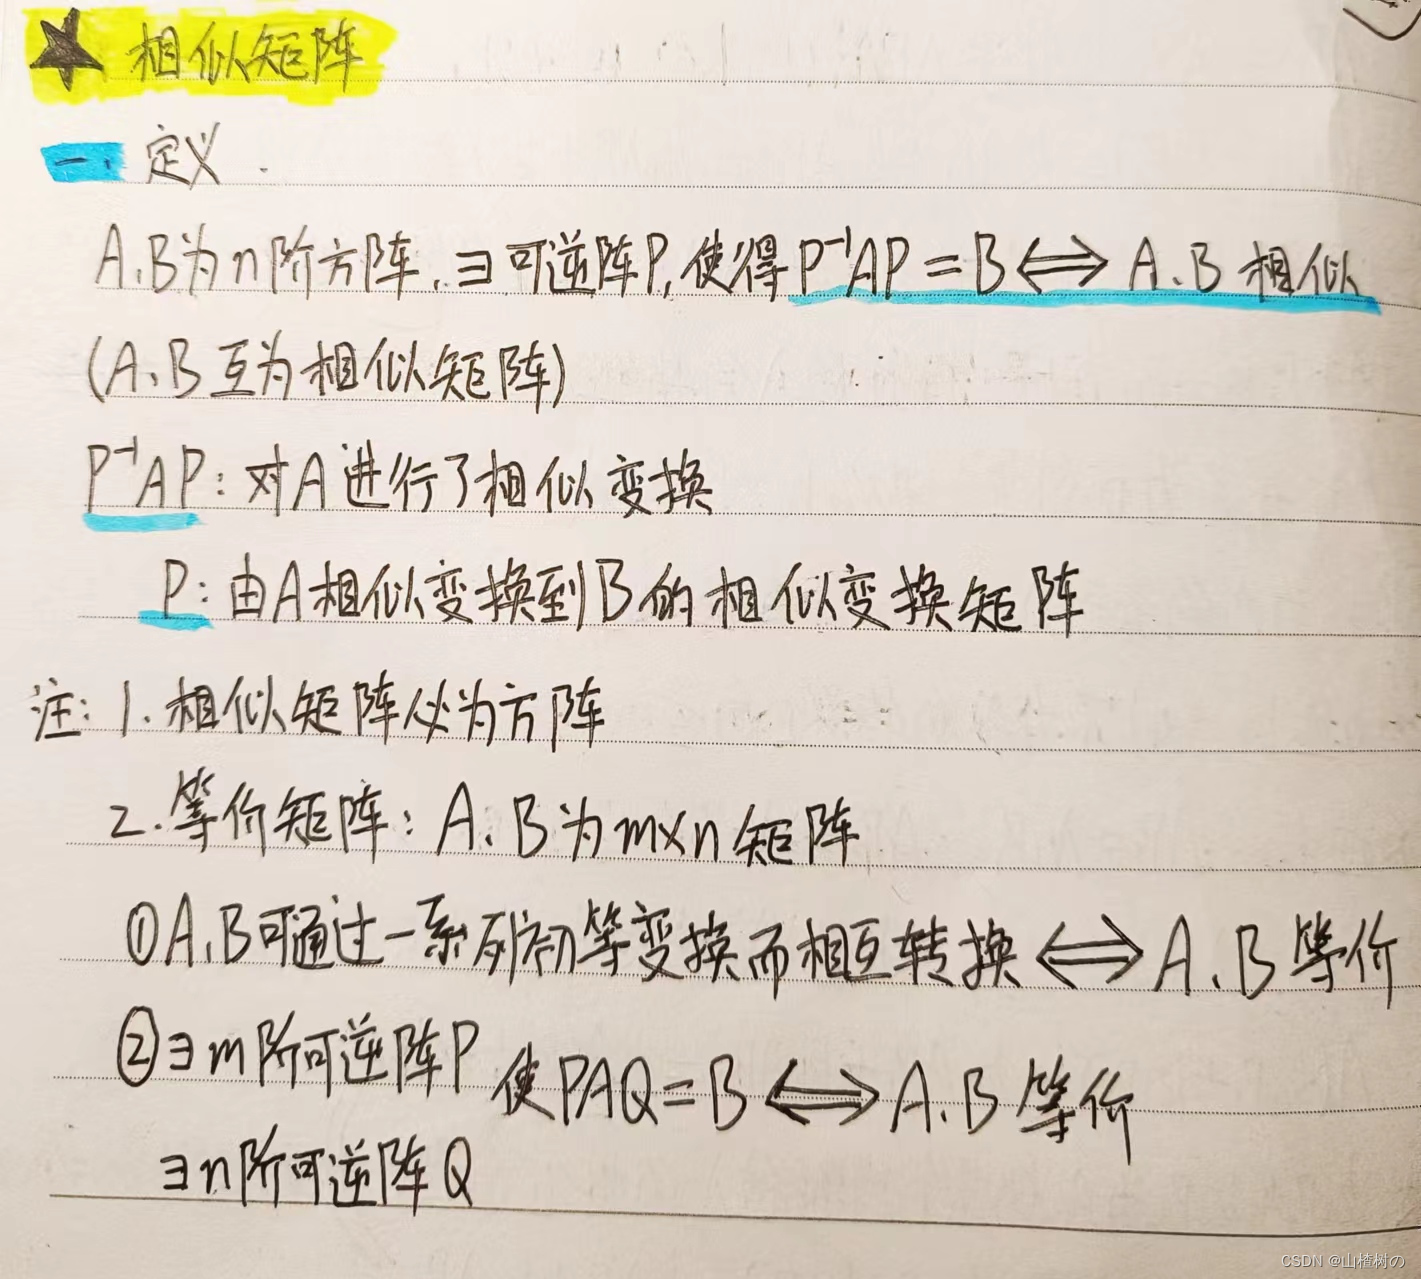 ★ 相似矩阵
一. 定义
A、B为n阶方阵，∃可逆阵P，使得P⁻¹AP=B⟺A、B相似
(A、B互为相似矩阵)
P⁻¹AP：对A进行了相似变换
P：由A相似变换到B的相似变换矩阵
注：1. 相似矩阵必为方阵
2. 等价矩阵：A、B为m×n矩阵
①A、B可通过一系列初等变换而相互转换⟺A、B等价
②∃m阶可逆阵P
使PAQ=B⟺A、B等价
∃n阶可逆阵Q
CSDN @山楂树の